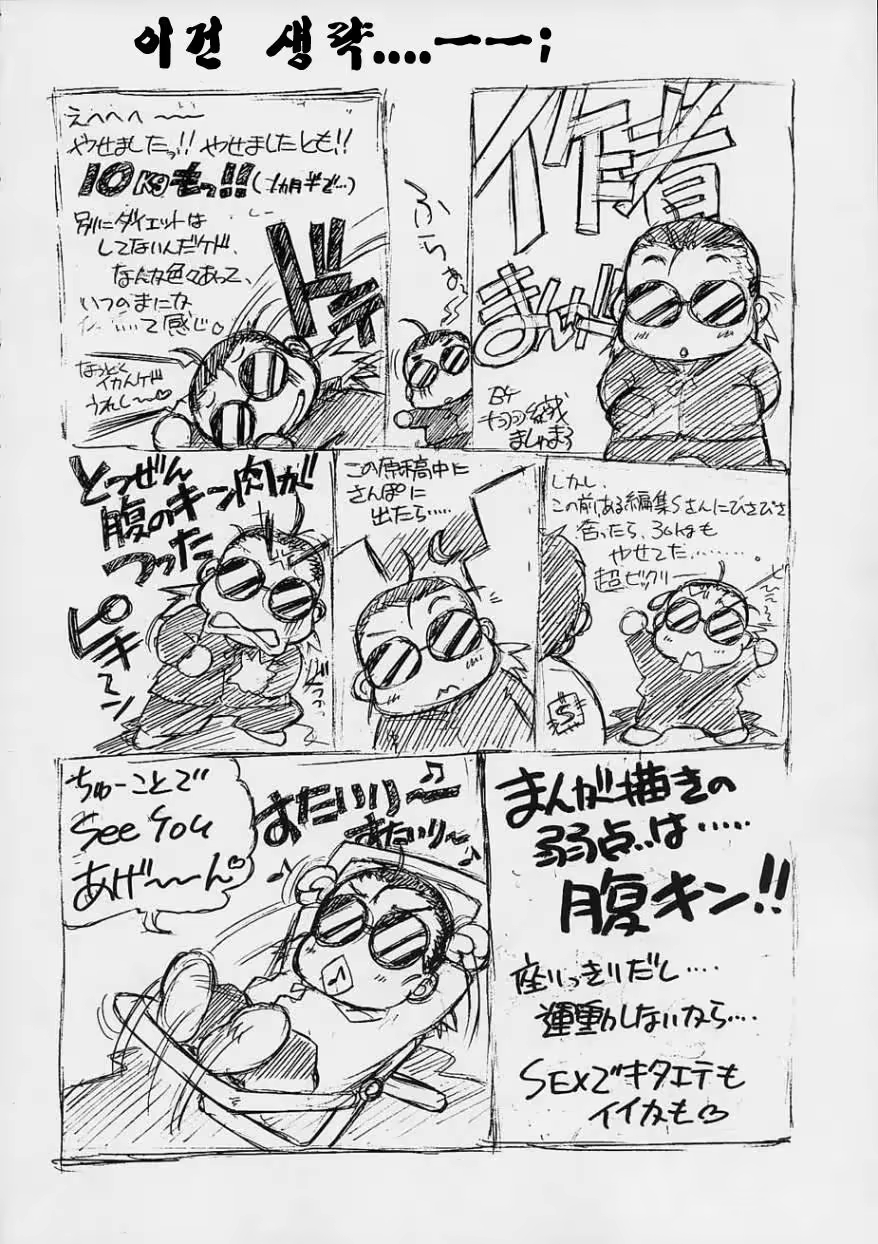 이건 생략....ㅡㅡ;
作者
まんが
BY
ましゅまろ
ふらぁ〜
えへへへ〜〜
やせましたっ!! やせましたとも!!
10Kgもっ!!(1カ月半で…)
別にダイエットは
してないんだケド、
なんか色々あって、
いつのまにな
って感じ。
なっとく
イカんケド
うれし〜♡
しかし、
この前ある編集Sさんにひさびさ
会ったら、30kgも
やせてた………
超ビックリ――
S
この原稿中に
さんぽに
出たら……
とつぜん
腹のキン肉が
つった
ピキーン
まんが描きの
弱点は……
腹キン!!
座りっきりだし…
運動しないなら…
SEXでキタエテも
イイかも♡
ちゅーことで
See You
あげ〜〜ん♡
すたいりー
すたいりー